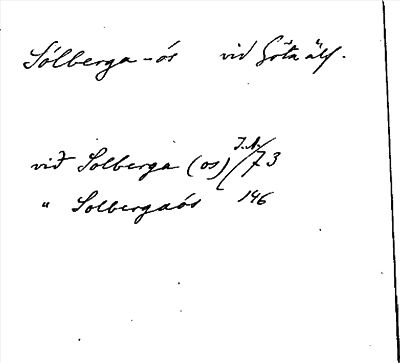 Sólberga-ós við Göta älf.
við Solberga (os) J.N. 73
" Solbergaós 146